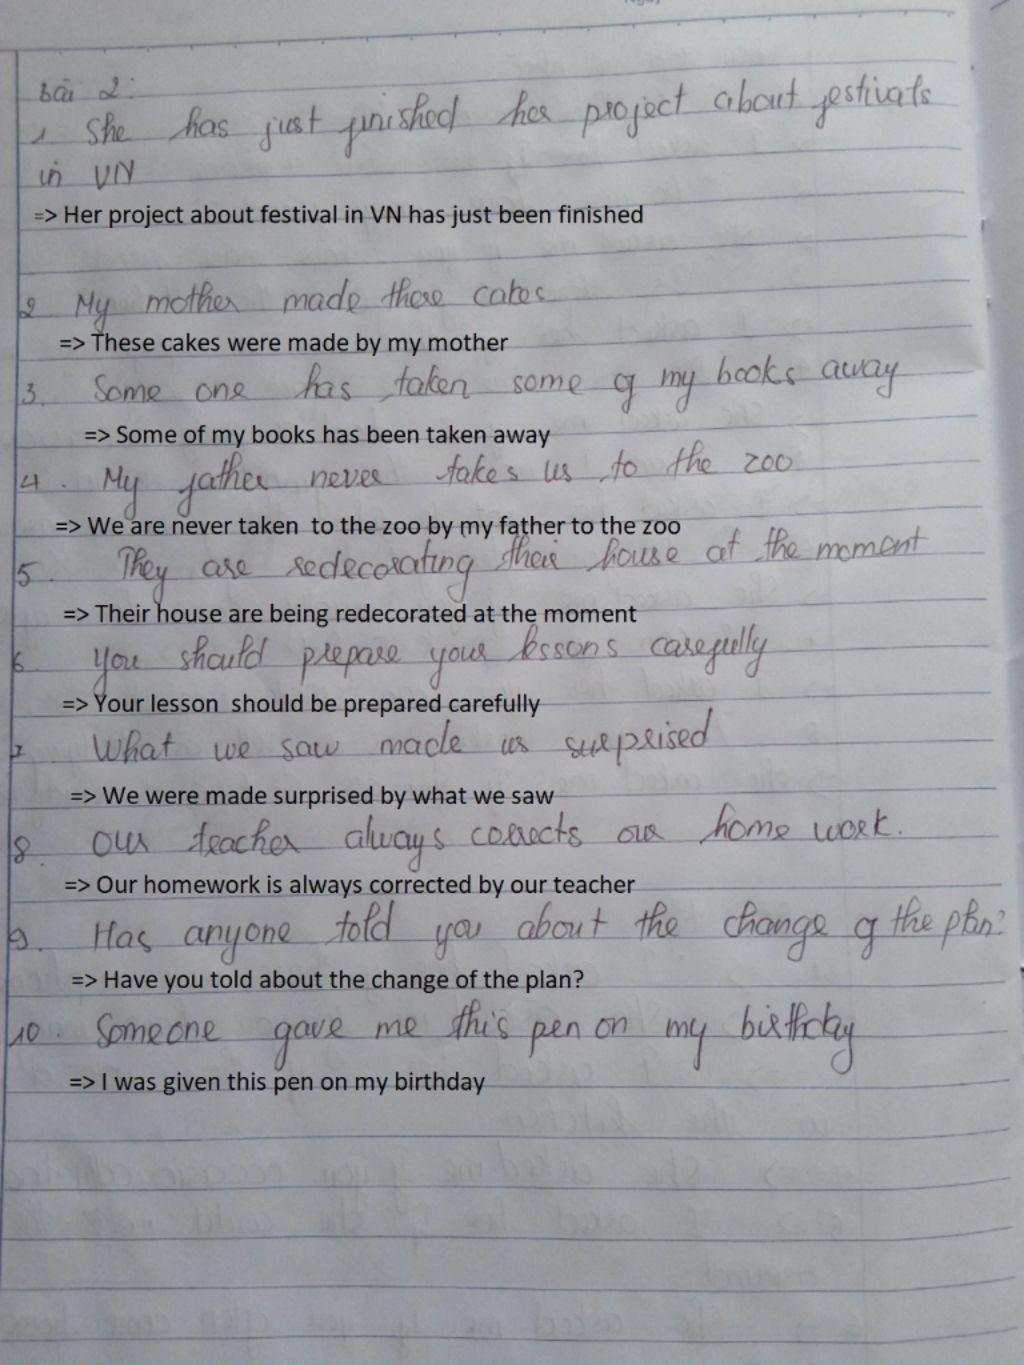 bài 2:
1. She has just finished her project about festivals
in VN
=> Her project about festival in VN has just been finished
2 My mother made these cakes
=> These cakes were made by my mother
3. Some one has taken some of my books away
=> Some of my books has been taken away
4. My father never takes us to the zoo
=> We are never taken to the zoo by my father to the zoo
5. They are redecorating their house at the moment
=> Their house are being redecorated at the moment
6. You should prepare your lessons carefully
=> Your lesson should be prepared carefully
7 What we saw made us surprised
=> We were made surprised by what we saw
8. Our teacher always corrects our home work.
=> Our homework is always corrected by our teacher
9. Has anyone told you about the change of the plan?
=> Have you told about the change of the plan?
10. Someone gave me this pen on my birthday
=> I was given this pen on my birthday